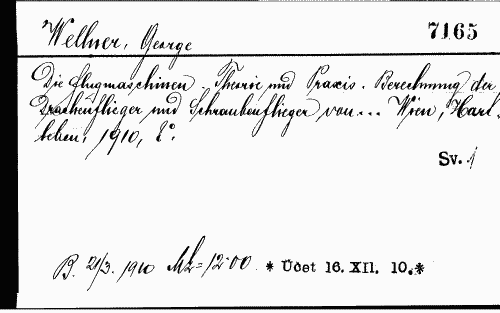 Wellner, George
7165
Die Flugmaschinen. Theorie und Praxis. Berechnung der
Drachenflieger und Schraubenflieger von... Wien, Hart-
leben, 1910, 8°.
Sv. 1
B. 21/3. 1910 Mk = 12·00 * Účet 16. XII. 10.*